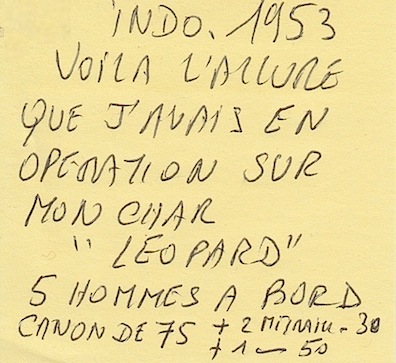 INDO. 1953
VOILA L'ALLURE
QUE J'AVAIS EN
OPERATION SUR
MON CHAR
"LEOPARD"
5 HOMMES A BORD
CANON DE 75 + 2 MITRAIL - 30
+ 1 — 50